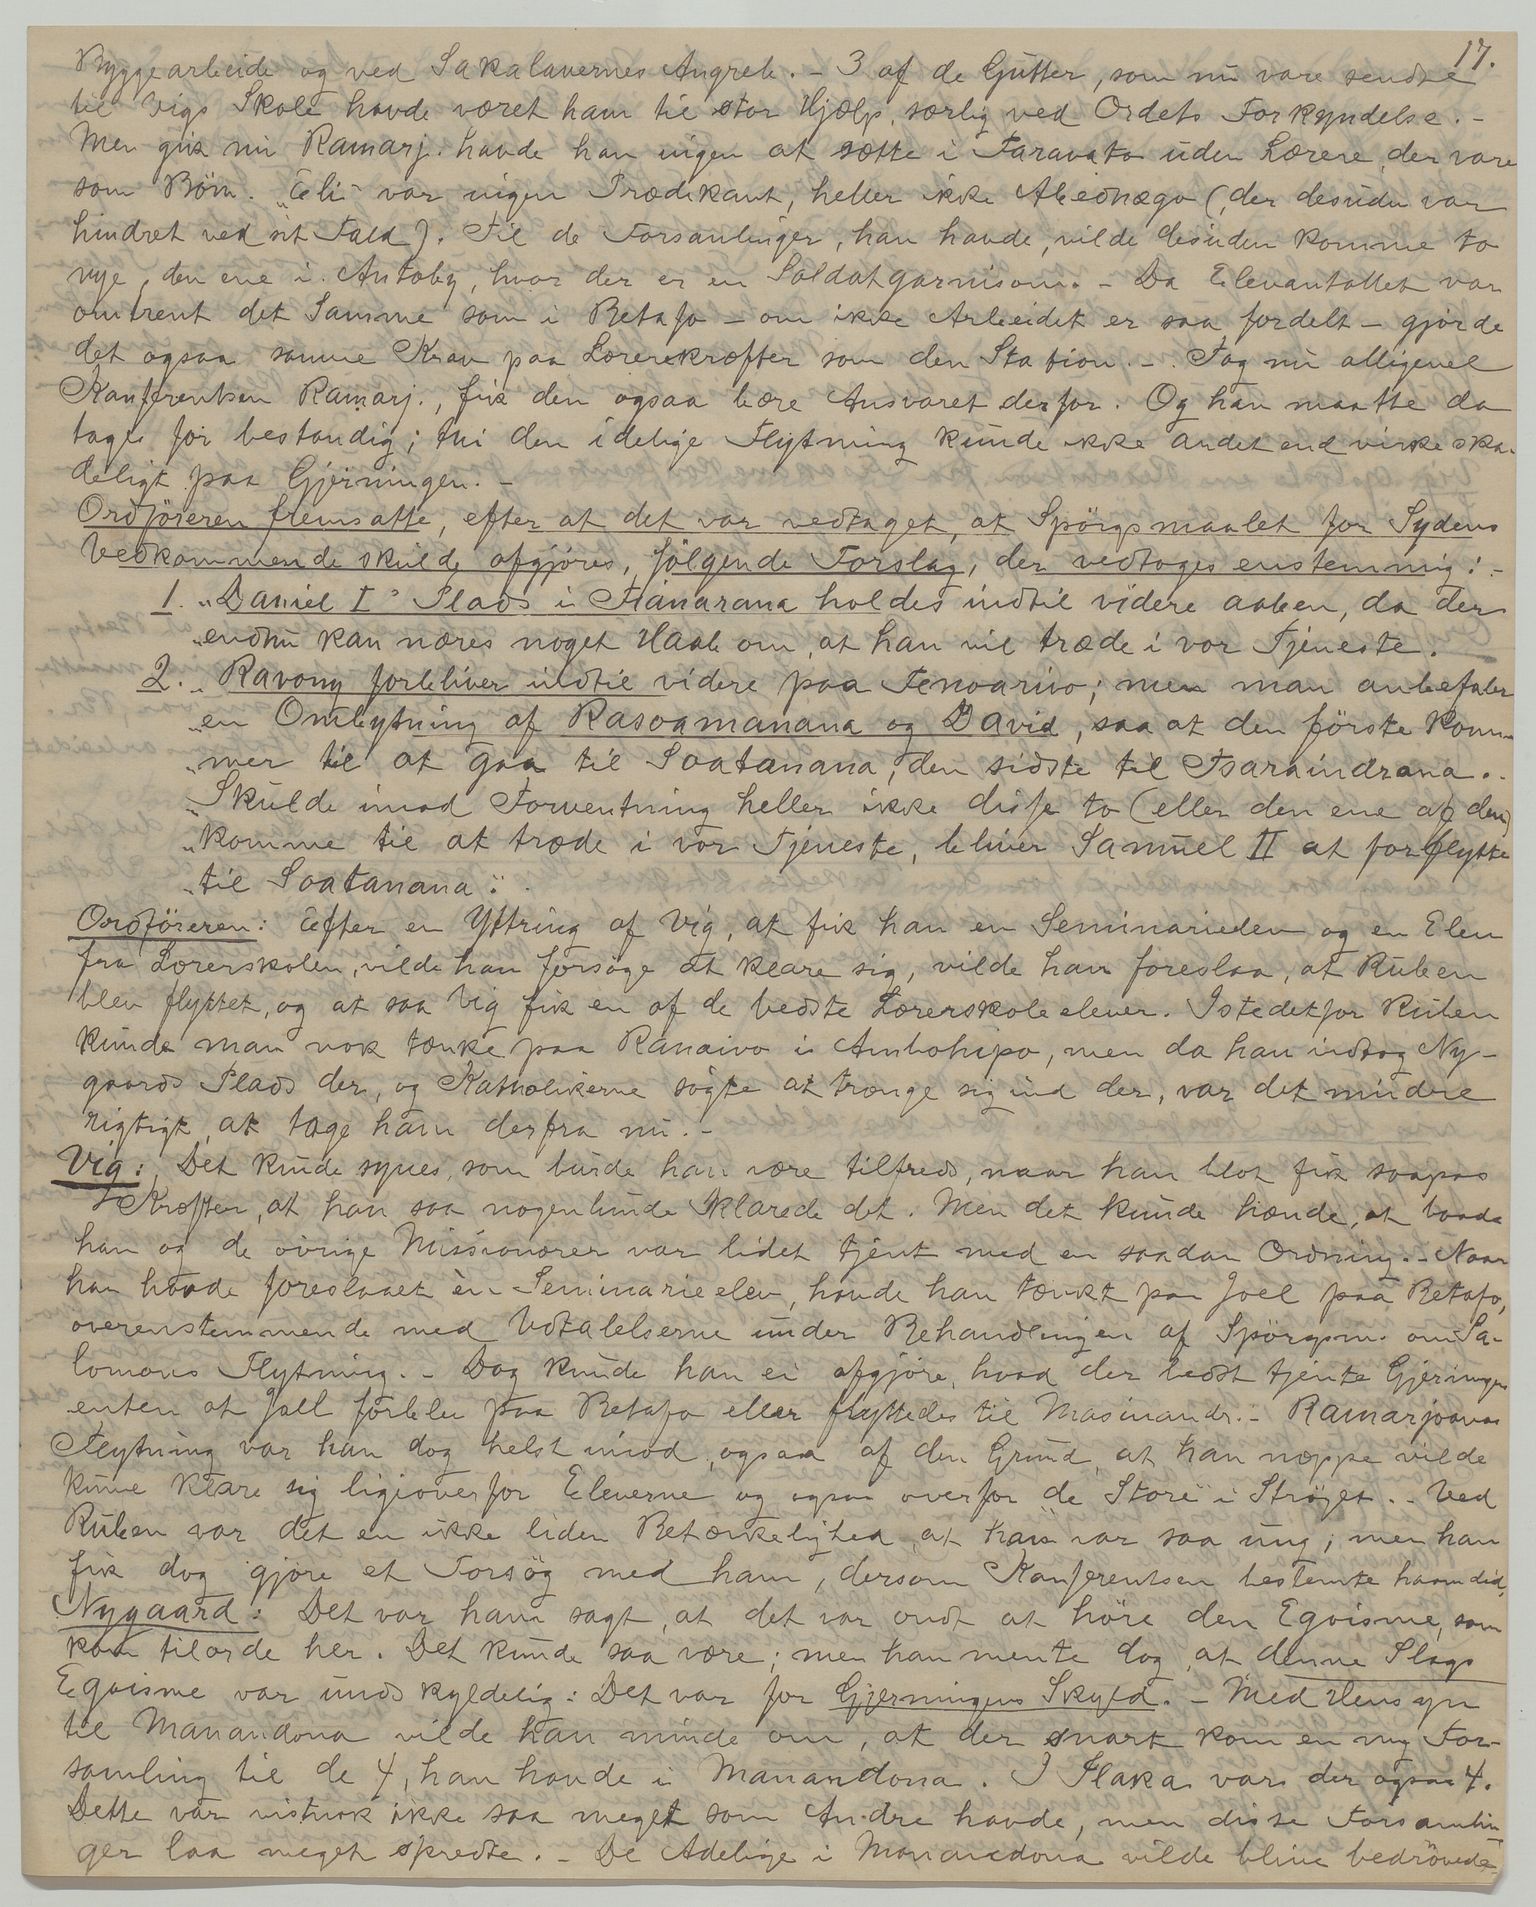 17.
Byggearbeide og ved Sakalavernes Angreb. - 3 af de Gutter, som nu vare sendte
til Vigs Skole havde været ham til stor Hjælp, særlig ved Ordets Forkyndelse. -
Men gik nu Ramarj. havde han ingen at sætte i Faravato uden Lærere, der vare
som Børn. "Eli" var ingen Prædikant, heller ikke Abednego (der desuden var
hindret ved sit Fald). Til de Forsamlinger, han havde, vilde desuden komme to
nye, den ene i Antoby, hvor der er en Soldatgarnison. - Da Elevantallet var
omtrent det Samme som i Betafo - om ikke Arbeidet er saa fordelt - gjorde
det ogsaa samme Krav paa Lærerkræfter som den Station. - Tog nu alligevel
Konferentsen Ramarj., fik den ogsaa bære Ansvaret derfor. Og han maatte da
tages for bestandig; thi den idelige Flytning kunde ikke andet end virke ska-
deligt paa Gjerningen. -
Ordføreren fremsatte, efter at det var vedtaget, at Spørgsmaalet for Sydens
Vedkommende skulde afgjøres, følgende Forslag, der vedtoges enstemmig: -
1. "Daniel I's Plads i Fianarana holdes indtil videre aaben, da der
"endnu kan næres noget Haab om, at han vil træde i vor Tjeneste.
2. "Ravony forbliver indtil videre paa Fenoarivo; men man anbefaler
"en Ombytning af Rasoamanana og David, saa at den første kom-
"mer til at gaa til Soatanana, den sidste til Tsaraindrana. -
"Skulde imod Forventning heller ikke disse to (eller den ene af dem)
"komme til at træde i vor Tjeneste, bliver Samuel II at forflytte
"til Soatanana".
Ordføreren: Efter en Yttring af Vig, at fik han en Seminarieelev og en Elev
fra Lærerskolen, vilde han forsøge at klare sig, vilde han foreslaa, at Ruben
blev flyttet, og at saa Vig fik en af de bedste Lærerskoleelever. Istedetfor Ruben
kunde man nok tænke paa Ranaivo i Ambohipo, men da han indtog Ny-
gaards Plads der, og Katholikerne søgte at trænge sig ind der, var det mindre
rigtigt, at tage ham derfra nu. -
Vig: Det kunde synes, som burde han være tilfreds, naar han blot fik saapas
Kræfter, at han saa nogenlunde klarede det. Men det kunde hænde, at baade
han og de øvrige Missionærer var lidet tjent med en saadan Ordning. - Naar
han havde foreslaaet èn Seminarieelev, havde han tænkt paa Joel paa Betafo,
overenstemmende med Udtalelserne under Behandlingen af Spørgsm. om Sa-
lomons Flytning. - Dog kunde han ei afgjøre, hvad der bedst tjente Gjerningen
enten at Joel forblev paa Betafo eller flyttedes til Masinandr. - Ramarjoanas
Flytning var han dog helst imod, ogsaa af den Grund, at han neppe vilde
kunne klare sig ligeoverfor Eleverne og ogsaa overfor "de Store" i Strøget. - Ved
Ruben var det en ikke liden Betænkelighed, at han var saa ung; men han
fik dog gjøre et Forsøg med ham, dersom Konferentsen bestemte ham did.
Nygaard: Det var ham sagt, at det var ondt at høre den Egoisme, som
kom tilorde her. Det kunde saa være; men han mente dog, at denne Slags
Egoisme var undskyldelig: Det var for Gjerningens Skyld. - Med Hensyn
til Manandona vilde han minde om, at der snart kom en ny For-
samling til de 4, han havde i Manandona. I Ilaka var der ogsaa 4.
Dette var vistnok ikke saa meget som Andre havde, men disse Forsamlin-
ger laa meget spredte. - De Adelige i Manandona vilde blive bedrøvede